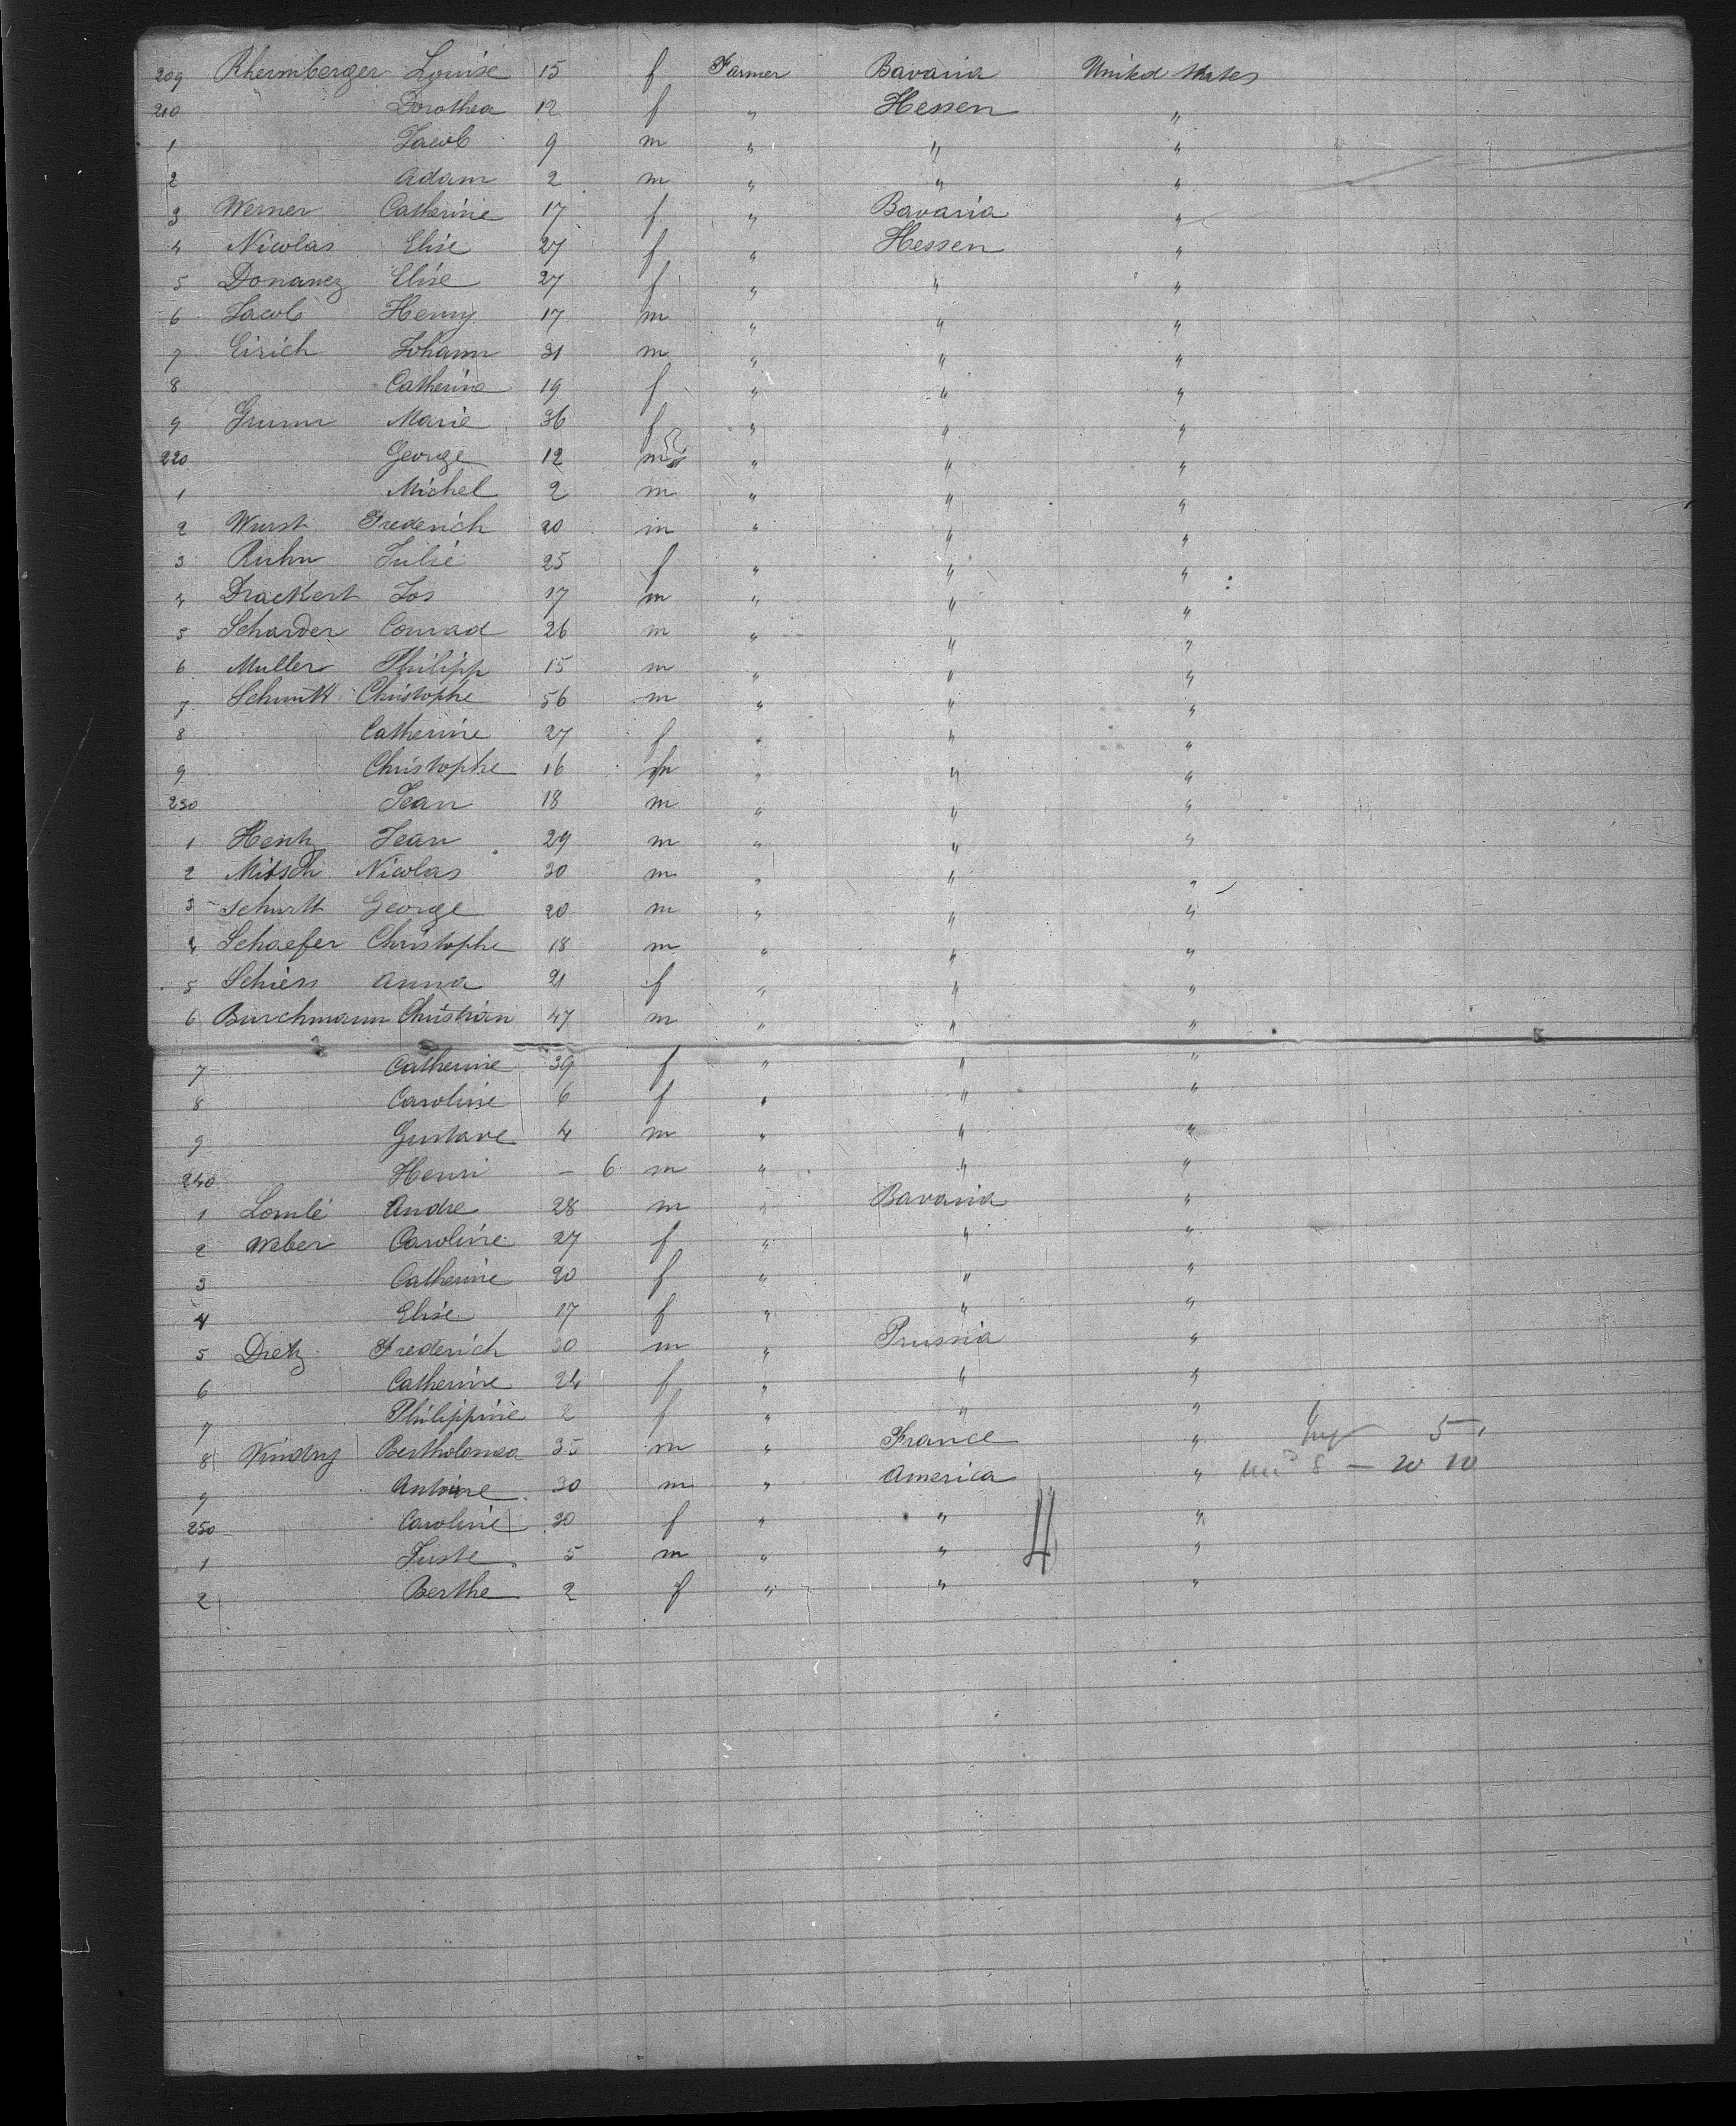 209 Rhermberger Louise 15 f Farmer Bavaria United States
210 Dorothea 12 f " Hessen "
1 Jacob 9 m " " "
2 Adam 2 m " " "
3 Werner Catherine 17 f " Bavaria "
4 Nicolas Elise 27 f " Hessen "
5 Donanez Elise 27 f " " "
6 Jacob Henry 17 m " " "
7 Eirich Johann 31 m " " "
8 Catherina 19 f " " "
9 Grumm Marie 36 f " " "
220 George 12 m " " "
1 Michel 2 m " " "
2 Wurst Frederich 20 m " " "
3 Ruhn Julie 25 f " " "
4 Drackert Jos 17 m " " "
5 Scharder Conrad 26 m " " "
6 Muller Philipp 15 m " " "
7 Schmitt Christophe 56 m " " "
8 Catherine 27 f " " "
9 Christophe 16 m " " "
230 Jean 18 m " " "
1 Hentz Jean 29 m " " "
2 Mitsch Nicolas 30 m " " "
3 Schutt George 20 m " " "
4 Schaefer Christophe 18 m " " "
5 Schiess Anna 21 f " " "
6 Burchmann Christian 47 m " " "
7 Catherine 39 f " " "
8 Caroline 6 f " " "
9 Gustave 4 m " " "
240 Henri – 6 m " " "
1 Lomlé Andre 28 m " Bavaria "
2 Weber Caroline 27 f " " "
3 Catherine 20 f " " "
4 Elise 17 f " " "
5 Dietz Frederich 30 m " Prussia "
6 Catherine 24 f " " "
7 Philippine 2 f " " "
8 Vindry Bertholomea 35 m " France " 5
9 Antoine 30 m " America " 8 — 20 10
250 Caroline 30 f " " "
1 Juste 5 m " " " 4
2 Berthe 2 f " " "